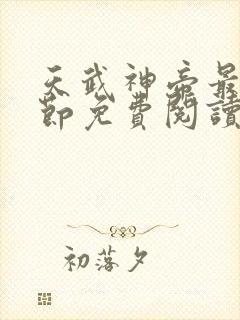 天武神帝最
節免費閱讀
初落夕